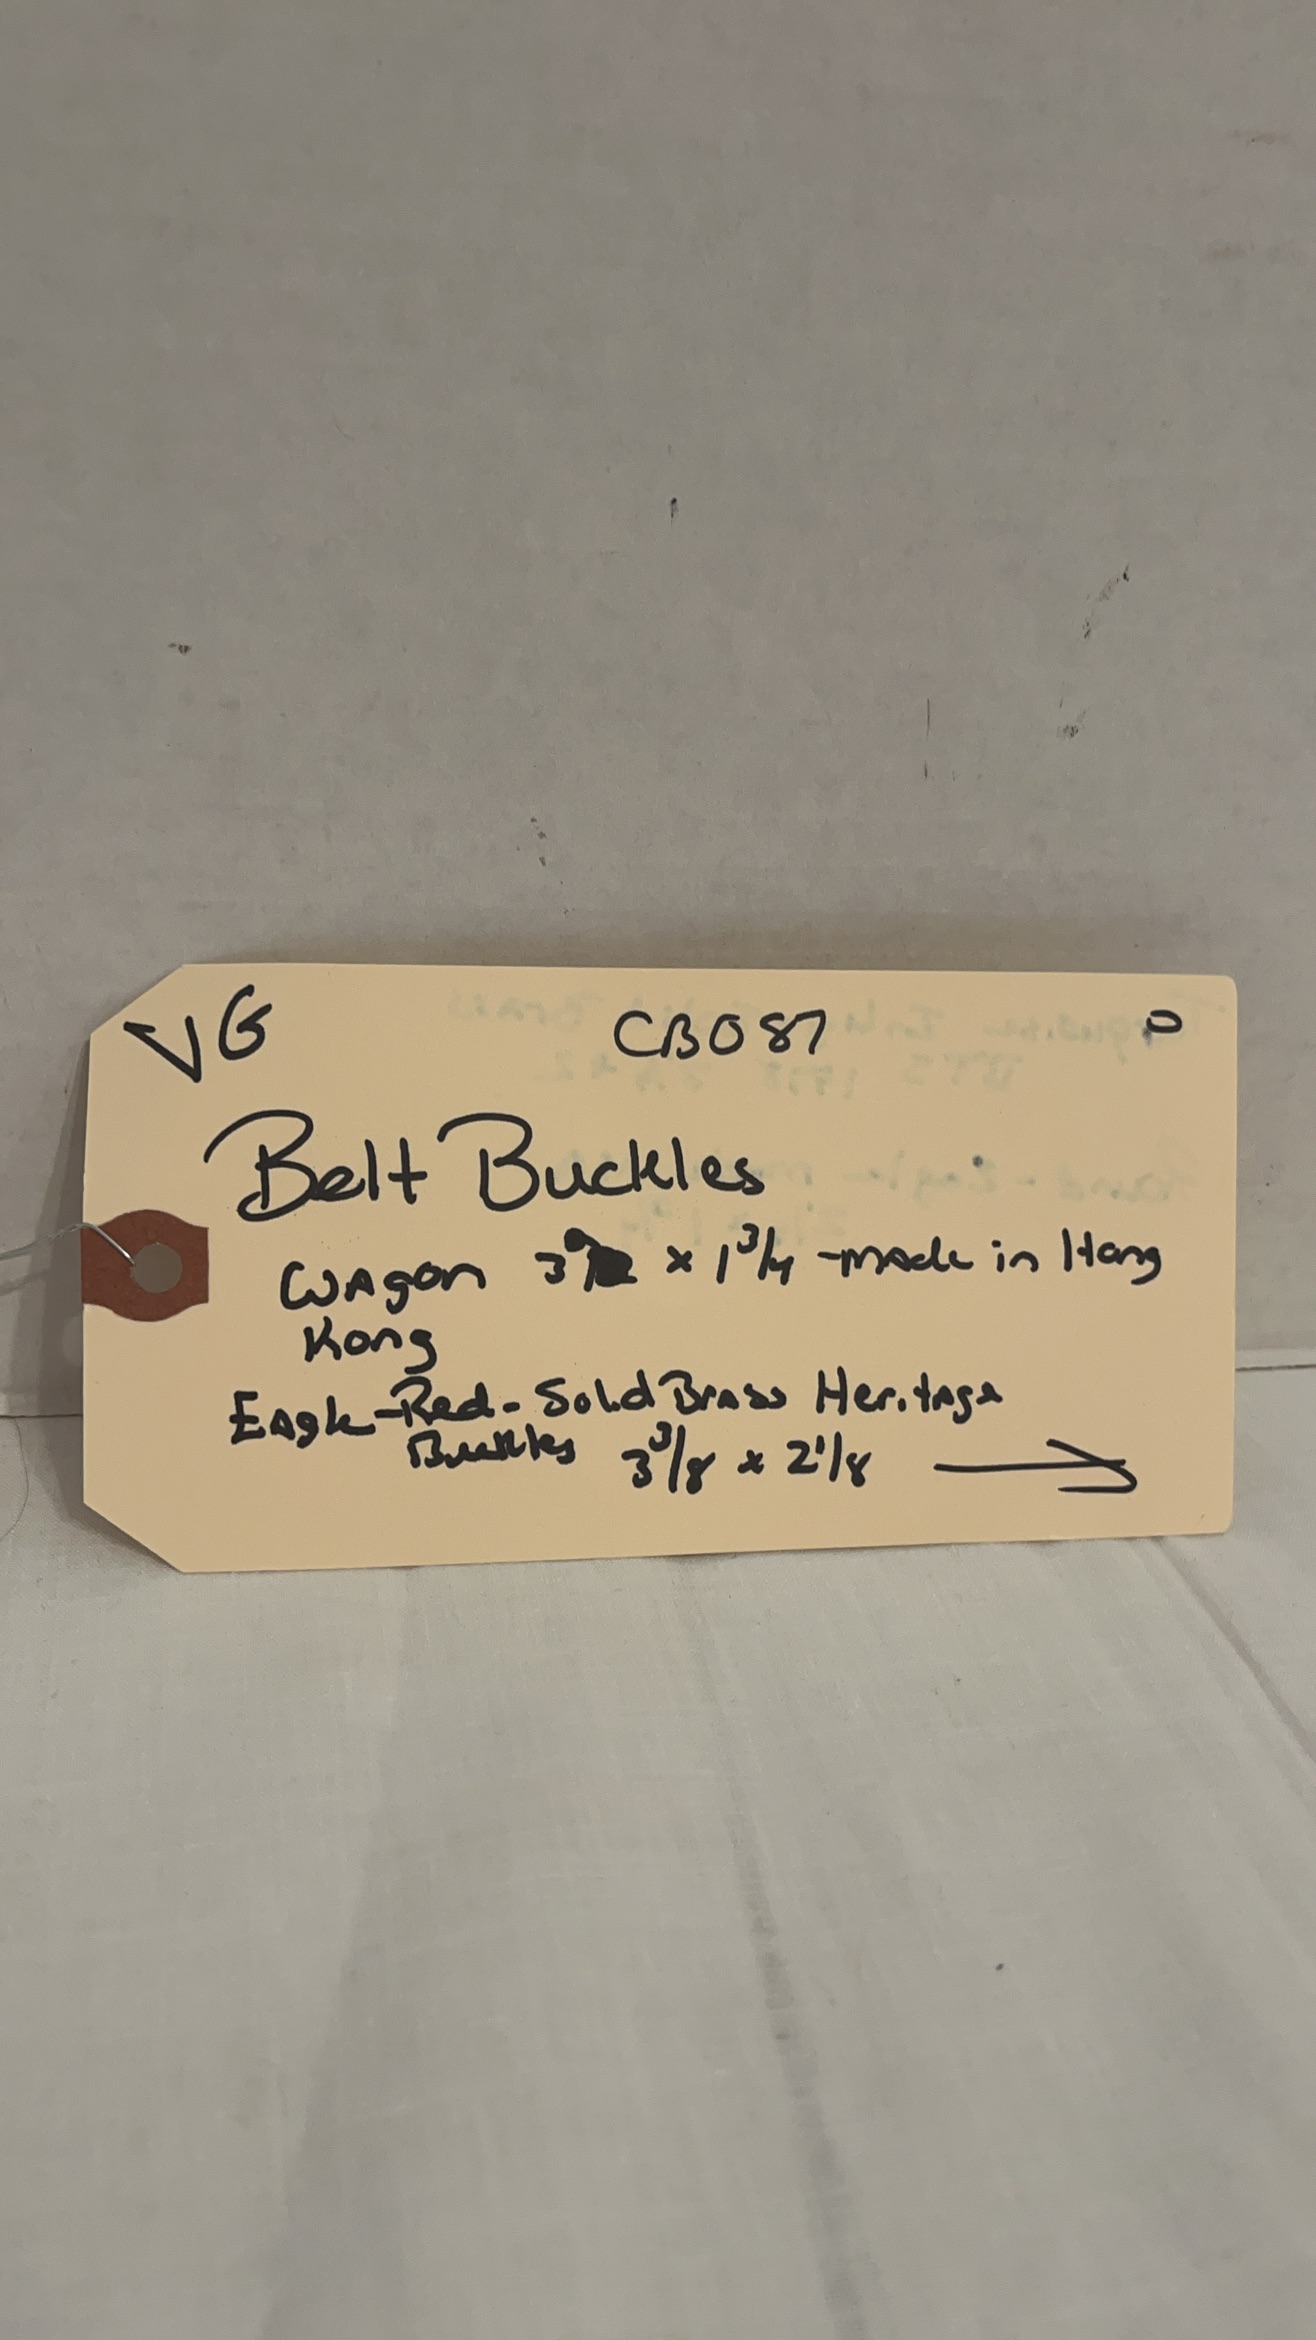 VG CB087 O
Belt Buckles
Wagon 3 x 1 3/4 - made in Hong
Kong
Eagle - Red - Solid Brass Heritage
Buckles 3 3/8 x 2 1/8 →